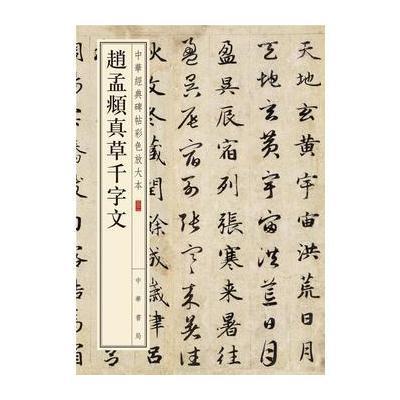 天地玄黃宇宙洪荒日月
天地玄黃宇宙洪荒日月
盈昃辰宿列張寒来暑往
盈昃辰宿列張寒来暑往
秋收冬藏閏餘成歲律吕
中華經典碑帖彩色放大本
趙孟頫真草千字文
中華書局